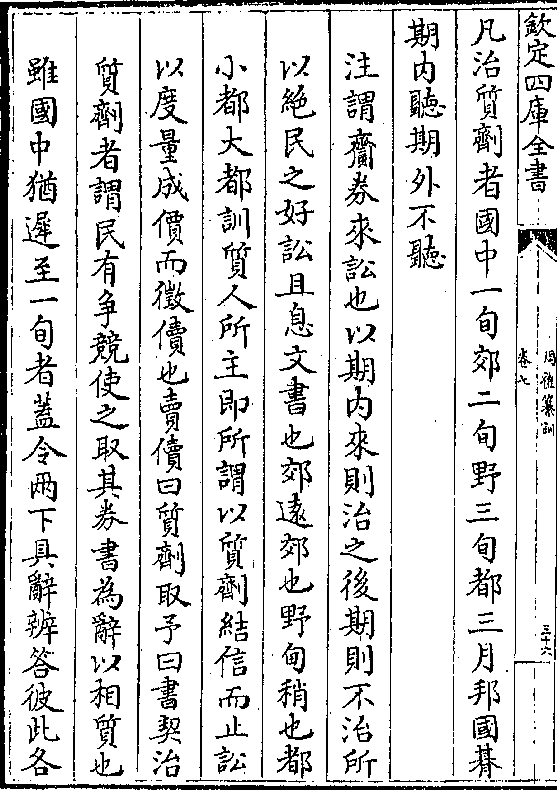 欽定四庫全書
周禮纂訓
卷七
三十六
凡治質劑者國中一旬郊二旬野三旬都三月邦國朞
期内聽期外不聽
注謂齎券來訟也以期内來則治之後期則不治所
以絶民之好訟且息文書也郊遠郊也野甸稍也都
小都大都訓質人所主即所謂以質劑結信而止訟
以度量成價而徵儥也賣儥曰質劑取予曰書契治
質劑者謂民有爭競使之取其券書為辭以相質也
雖國中猶遲至一旬者蓋令兩下具辭辨答彼此各